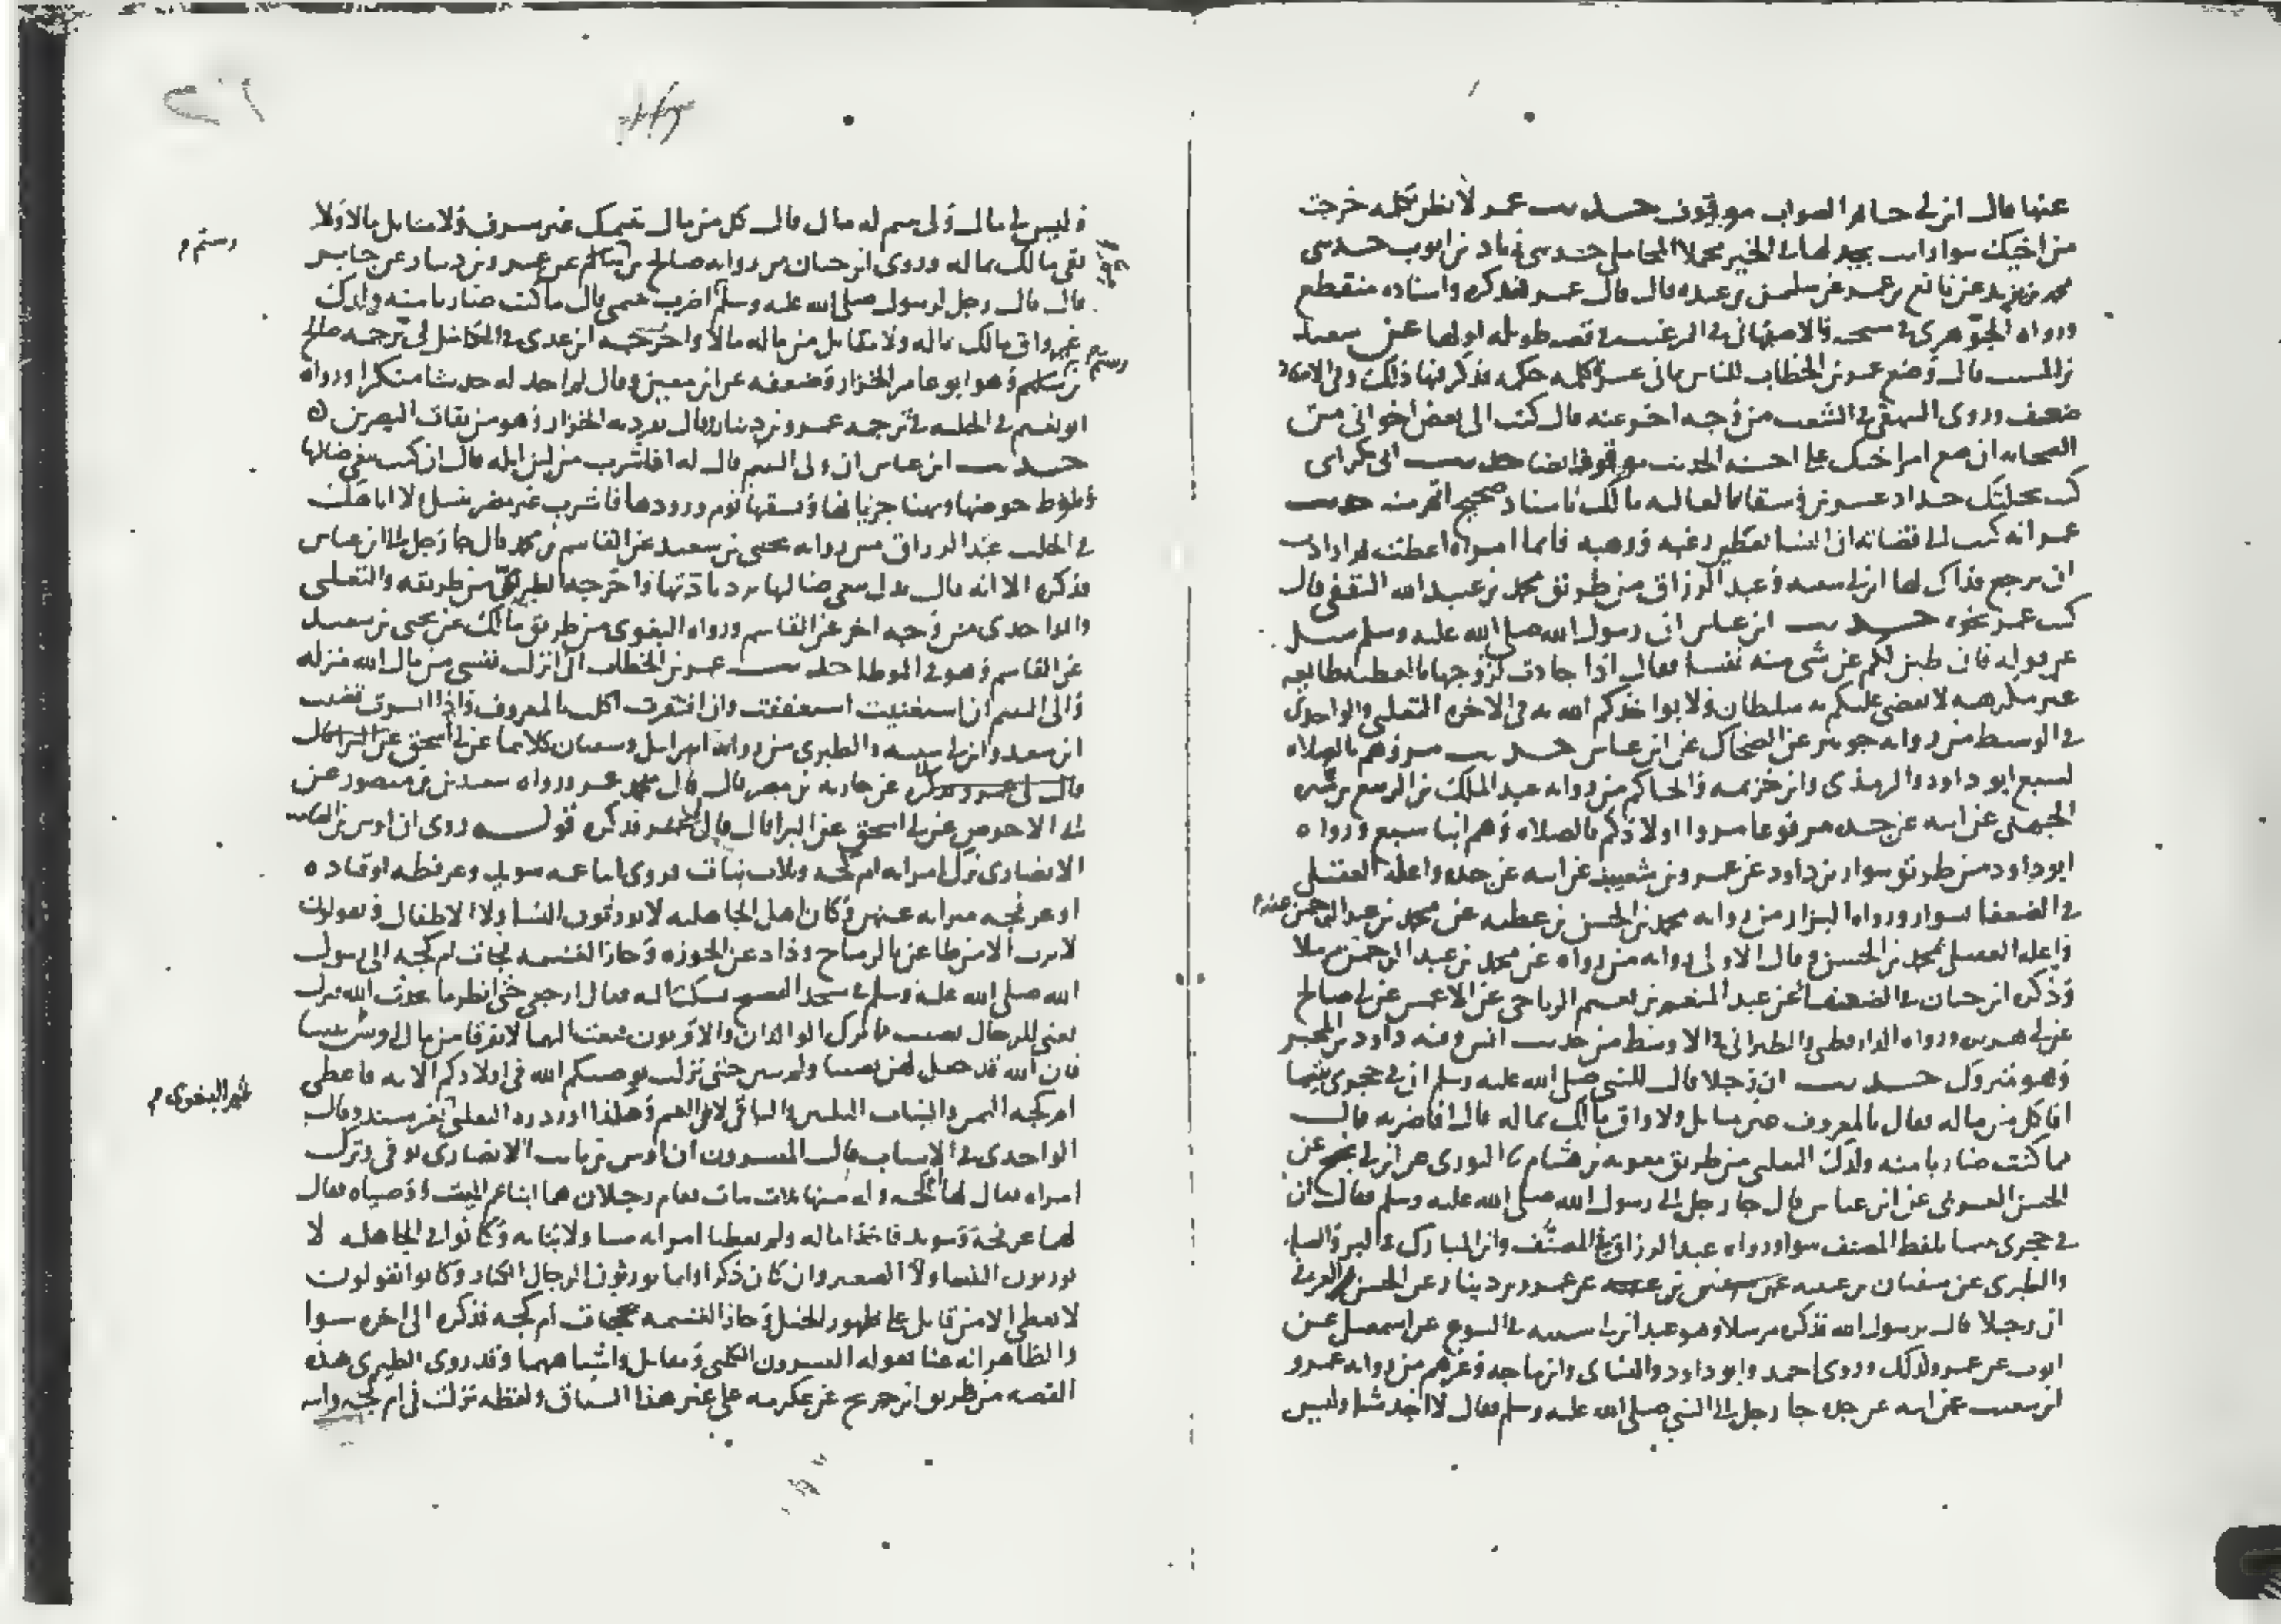 عنها قال ابن ابي حاتم الصواب موقوف حديث عمر لا نظر نحله خرجت
من اخيك سوا وانت تجد لها في الخير محملا المحاملي حدثني زياد بن ايوب حدثني
محمد بن يزيد عن نافع بن عمر عن سليمن بن عبده قال قال عمر فذكره واسناده منقطع
ورواه الجوهري في والاصبهاني في الترغيب في قصه طويله اولها عن سعيد
بن المسيب قال وضع عمر بن الخطاب للناس ثماني عشرة كلمه حكمه فذكر فيها ذلك وفي الاسناد
ضعف وروى البيهقي في الشعب من وجه اخر عنه قال كتب الى بعض اخواني من
الصحابه ان ضع امر اخيك على احسنه الحديث موقوف ايضا حديث
عمر انه كتب الى قضاته ان النسا يعطين رغبه ورهبه فايما امراه اعطته ثم ارادت
ان ترجع فذاك لها ابن ابي شيبه وعبد الرزاق من طريق محمد بن عبيد الله الثقفي قال
كتب عمر نحوه حديث ابن عباس ان رسول الله صلى الله عليه وسلم سئل
عن قوله فان طبن لكم عن شي منه نفسا فقال اذا جادت لزوجها بالعطيه طايعه
غير مكرهه لا يقضي عليكم به سلطان ولا يواخذكم الله به في الاخره الثعلبي والواحدي
في الوسيط من روايه جويبر عن الضحاك عن ابن عباس حديث مروهم بالصلاه
لسبع ابو داود والترمذي وابن خزيمه والحاكم من روايه عبد الملك بن الربيع بن سبره
الجهني عن ابيه عن جده مرفوعا مروا اولادكم بالصلاه وهم ابنا سبع ورواه
ابو داود من طريق سوار بن داود عن عمرو بن شعيب عن ابيه عن جده واعله العقيلي
في الضعفا بسوار ورواه البزار من روايه محمد بن الحسن بن عطيه عن محمد بن عبد الرحمن عنه
واعله العقيلي بمحمد بن الحسن وقال الاولى روايه من رواه عن محمد بن عبد الرحمن مرسلا
وذكره ابن حبان في الضعفا عن عبد المنعم بن نعيم الرياحي عن الاعمش عن ابي صالح
عن ابي هريره ورواه الدارقطني والطبراني في الاوسط من حديث انس وفيه داود بن المحبر
وهو متروك حديث ان رجلا قال للنبي صلى الله عليه وسلم ان في حجري يتيما
افاكل من ماله فقال بالمعروف غير متاثل ولا واق مالك بماله قال افاضربه قال
مما كنت ضاربا منه ولدك الثعلبي من طريق معويه بن هشام ثنا الثوري عن ابن ابي نجيح عن
الحسن العرني عن ابن عباس قال جا رجل الى رسول الله صلى الله عليه وسلم فقال ان
في حجري يتيما بلفظ المصنف سوا ورواه عبد الرزاق في المصنف وابن المبارك في البر والصله
والطبري عن سفيان بن عيينه عن عمرو بن دينار عن الحسن العرني
ان رجلا قال يرسول الله فذكره مرسلا وهو عند ابن ابي شيبه في البيوع عن اسمعيل عن
ايوب عن عمرو كذلك وروى احمد وابو داود والنساي وابن ماجه وغيرهم من روايه عمرو
ابن شعيب عن ابيه عن جده جا رجل الى النبي صلى الله عليه وسلم فقال لا اجد شيا وليس
وليس لي مال ولي يتيم له مال قال كل من مال يتيمك غير مسرف ولا متاثل مالا ولا
تقي مالك بماله وروى ابن حبان من روايه صالح بن رستم عن عمرو بن دينار عن جابر
قال قال رجل لرسول صلى الله عليه وسلم مما اضرب يتيمي قال ما كنت ضاربا منه ولدك
غير واق مالك بماله ولا متاثل من ماله مالا واخرجه ابن عدي في الكامل في ترجمه صالح
بن رستم وهو ابو عامر الخزاز وضعفه عن ابن معين وقال لم اجد له حديثا منكرا ورواه
ابو نعيم في الحليه في ترجمه عمرو بن دينار وقال تفرد به الخزاز وهو من ثقات البصرين
حديث ابن عباس ان ولي اليتيم قال له افاشرب من لبن ابله قال ان كنت تبغي ضالتها
وتلوط حوضها وتهنا جرباها وتسقيها يوم ورودها فاشرب غير مضر بنسل ولا
في الحلب عبد الرزاق من روايه يحيى بن سعيد عن القاسم بن محمد قال جا رجل الى ابن عباس
فذكره الا انه قال بدل تبغي ضالتها ترد نادتها واخرجه الطبري من طريقه والثعلبي
والواحدي من وجه اخر عن القاسم ورواه البغوي من طريق مالك عن يحيى بن سعيد
عن القاسم وهو في الموطا حديث عمر بن الخطاب اني انزلت نفسي من مال الله منزله
والي اليتيم ان استغنيت استعففت وان افتقرت اكلت بالمعروف واذا ايسرت قضيت
ابن سعد وابن ابي شيبه والطبري من روايه اسرايل وسفيان كلاهما عن ابي اسحق
عن حارثه بن مضرب قال قال عمر ورواه سعيد بن منصور عن
ابي الاحوص عن ابي اسحق عن البرا قال قال لي عمر فذكره قوله روى ان اوس بن الصامت
الانصاري ترك امراته ام كحه وثلاث بنات فزوى ابنا عمه سويد وعرفطه او قتاده
او عرفجه ميراثه عنهن وكان اهل الجاهليه لا يورثون النسا ولا الاطفال ويقولون
لا يرث الا من طاعن بالرماح وذاد عن الحوزه وحاز الغنيمه فجات ام كحه الى رسول
الله صلى الله عليه وسلم في مسجد الفضيخ فشكت اليه فقال ارجعي حتى انظر ما يحدث الله فنزلت
يعني للرجال نصيب مما ترك الوالدان والاقربون فبعث اليهما لا تفرقا من مال اوس شيا
فان الله قد جعل لهن نصيبا ولم يبين حتى نزلت يوصيكم الله في اولادكم الايه فاعطى
ام كحه الثمن والبنات الثلثين والباقي لابني العم وهكذا اورده الثعلبي بغير سند وقال
الواحدي في الاسباب قال المفسرون ان اوس بن ثابت الانصاري توفي وترك
امراه يقال لها ام كحه وله منها ثلاث بنات فقام رجلان هما ابنا عم الميت ووصياه يقال
لهما عرفجه وسويد فاخذا ماله ولم يعطيا امراته شيا ولا بناته وكانوا في الجاهليه لا
يورثون النسا ولا الصغير وان كان ذكرا وانما يورثون الرجال الكبار وكانوا يقولون
لا يعطى الا من قاتل على ظهور الخيل وحاز الغنيمه فجات ام كحه فذكره الى اخره سوا
والظاهر انه عنا بقوله المفسرون الكلبي ومقاتل واشباههما وقد روى الطبري هذه
القصه من طريق ابن جريج عن عكرمه على غير هذا السياق ولفظه نزلت في ام كحه وابنه
رستم
رستم
ثم البغوي